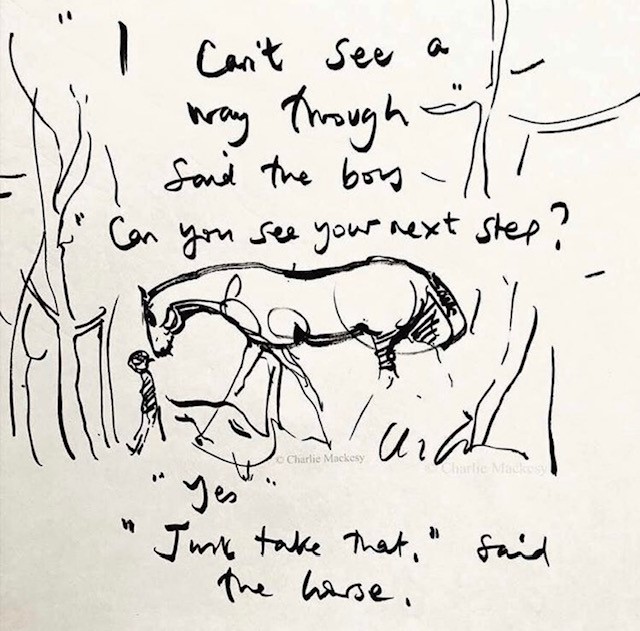 "I Can't see a
way through"
Said the boy
"Can you see your next step?
© Charlie Mackesy
© Charlie Mackesy
"Yes"
"Just take that," said
the horse.